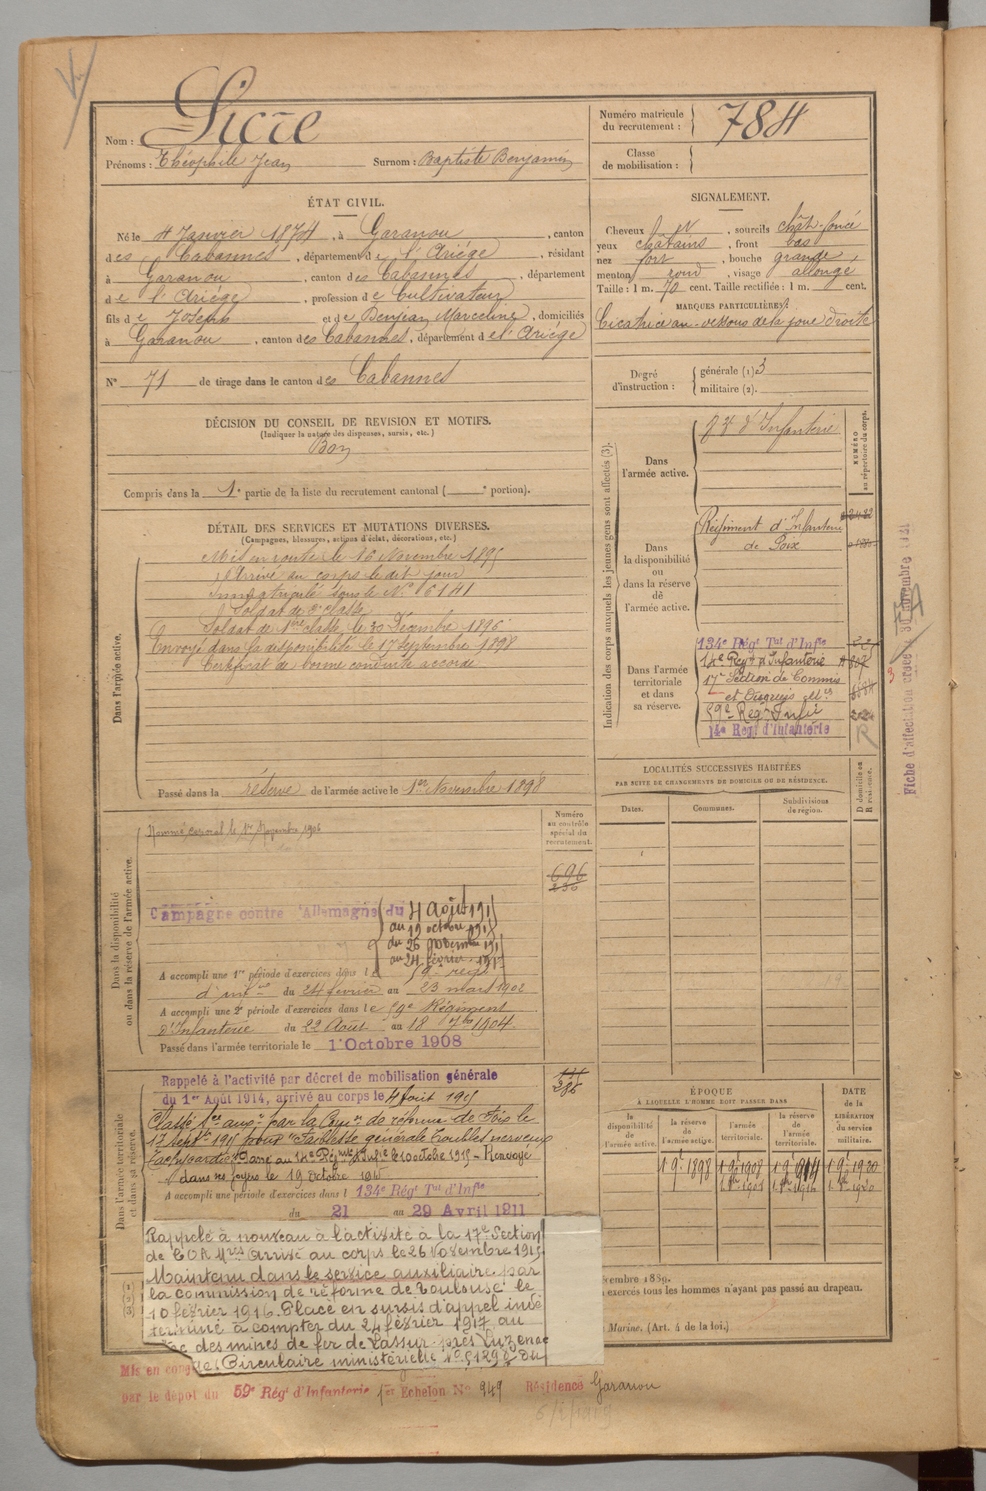 Nom : Sicre
Prénoms : Théophile Jean Surnom : Baptiste Benjamin
Numéro matricule du recrutement : 784
Classe de mobilisation :
ÉTAT CIVIL.
Né le 4 Janvier 1874, à Garanou, canton
des Cabannes, département de l'Ariége, résidant
à Garanou, canton des Cabannes, département
de l'Ariége, profession de Cultivateur
fils de Joseph et de Benjean Marceline, domiciliés
à Garanou, canton des Cabannes, département de l'Ariége
N° 71 de tirage dans le canton des Cabannes
SIGNALEMENT.
Cheveux et sourcils chât-foncé
yeux châtains, front bas
nez fort, bouche grande,
menton rond, visage allongé
Taille : 1 m. 70 cent. Taille rectifiée : 1 m. cent.
MARQUES PARTICULIÈRES :
Cicatrice au-dessous de la joue droite
Degré d'instruction : générale (1) 3
militaire (2).
DÉCISION DU CONSEIL DE REVISION ET MOTIFS.
(Indiquer la nature des dispenses, sursis, etc.)
Bon
Compris dans la 1e partie de la liste du recrutement cantonal ( e portion).
DÉTAIL DES SERVICES ET MUTATIONS DIVERSES.
(Campagnes, blessures, actions d'éclat, décorations, etc.)
Dans l'armée active.
Mis en route le 16 Novembre 1895
Arrivé au corps le dit jour
Immatriculé sous le N° 6141
Soldat de 2e classe
Soldat de 1ère classe le 30 Décembre 1896
Envoyé dans la disponibilité le 17 Septembre 1898
Certificat de bonne conduite accordé
Passé dans la réserve de l'armée active le 1er Novembre 1898
Indication des corps auxquels les jeunes gens sont affectés (3).
NUMÉRO au répertoire du corps.
Dans l'armée active.
d'Infanterie
Dans la disponibilité ou dans la réserve de l'armée active.
Régiment d'Infanterie
de Foix
Dans l'armée territoriale et dans sa réserve.
134e Régt Tal d'Infie
14e Régt d'Infanterie
17e Section de Commis
et Ouvriers Mres
59e Regt Infie
14e Regt d'Infanterie
R
Fiche d'affectation créée le 30 novembre 1921
LOCALITÉS SUCCESSIVES HABITÉES
PAR SUITE DE CHANGEMENTS DE DOMICILE OU DE RÉSIDENCE.
Dates. Communes. Subdivisions de région. D domicile ou R résidence.
Dans la disponibilité ou dans la réserve de l'armée active.
Numéro au contrôle spécial du recrutement.
Nommé caporal le 1er Novembre 1906
696
230
Campagne contre l'Allemagne du 4 Août 191
au 19 octobre 191
du 26 novembre 191
au 24 février 1917
A accompli une 1re période d'exercices dans le 59e régt
d'infie du 24 février au 23 mars 1902
A accompli une 2e période d'exercices dans le 59e Régiment
d'Infanterie du 22 Août au 18 7bre 1904.
Passé dans l'armée territoriale le 1er Octobre 1908
Dans l'armée territoriale et dans sa réserve.
Rappelé à l'activité par décret de mobilisation générale
du 1er Août 1914, arrivé au corps le 4 Août 191
Classé Ser auxre par la Comon de réforme de Foix le
17 Septbre 1915 pour "Faiblesse générale Troubles nerveux
Tachycardie" Passé au 14e Régiment d'Infie le 10 octobre 1915 - Renvoyé
dans ses foyers le 19 Octobre 1915
A accompli une période d'exercices dans l 134e Régt Tal d'Infie
du 21 au 29 Avril 1911
Rappelé à nouveau à l'activité à la 17e Section
de COA Mres Arrivé au corps le 26 Novembre 1915
Maintenu dans le service auxiliaire par
la commission de réforme de Toulouse le
10 février 1916. Placé en sursis d'appel indé
terminé à compter du 24 février 1917 au
des mines de fer de Lassur près Luzenac
Circulaire ministérielle N° 51298 du
ÉPOQUE
À LAQUELLE L'HOMME DOIT PASSER DANS
la disponibilité de l'armée active.
la réserve de l'armée active.
l'armée territoriale.
la réserve de l'armée territoriale.
DATE de la LIBÉRATION du service militaire.
1 9bre 1898 1 9bre 1908 1 9bre 1914 1 9bre 1920
vembre 1889.
exercés tous les hommes n'ayant pas passé au drapeau.
Marine. (Art. 4 de la loi.)
Mis en cong
par le dépôt du 59e Régt d'Infanterie 1er Echelon N° 949 Résidence Garanou